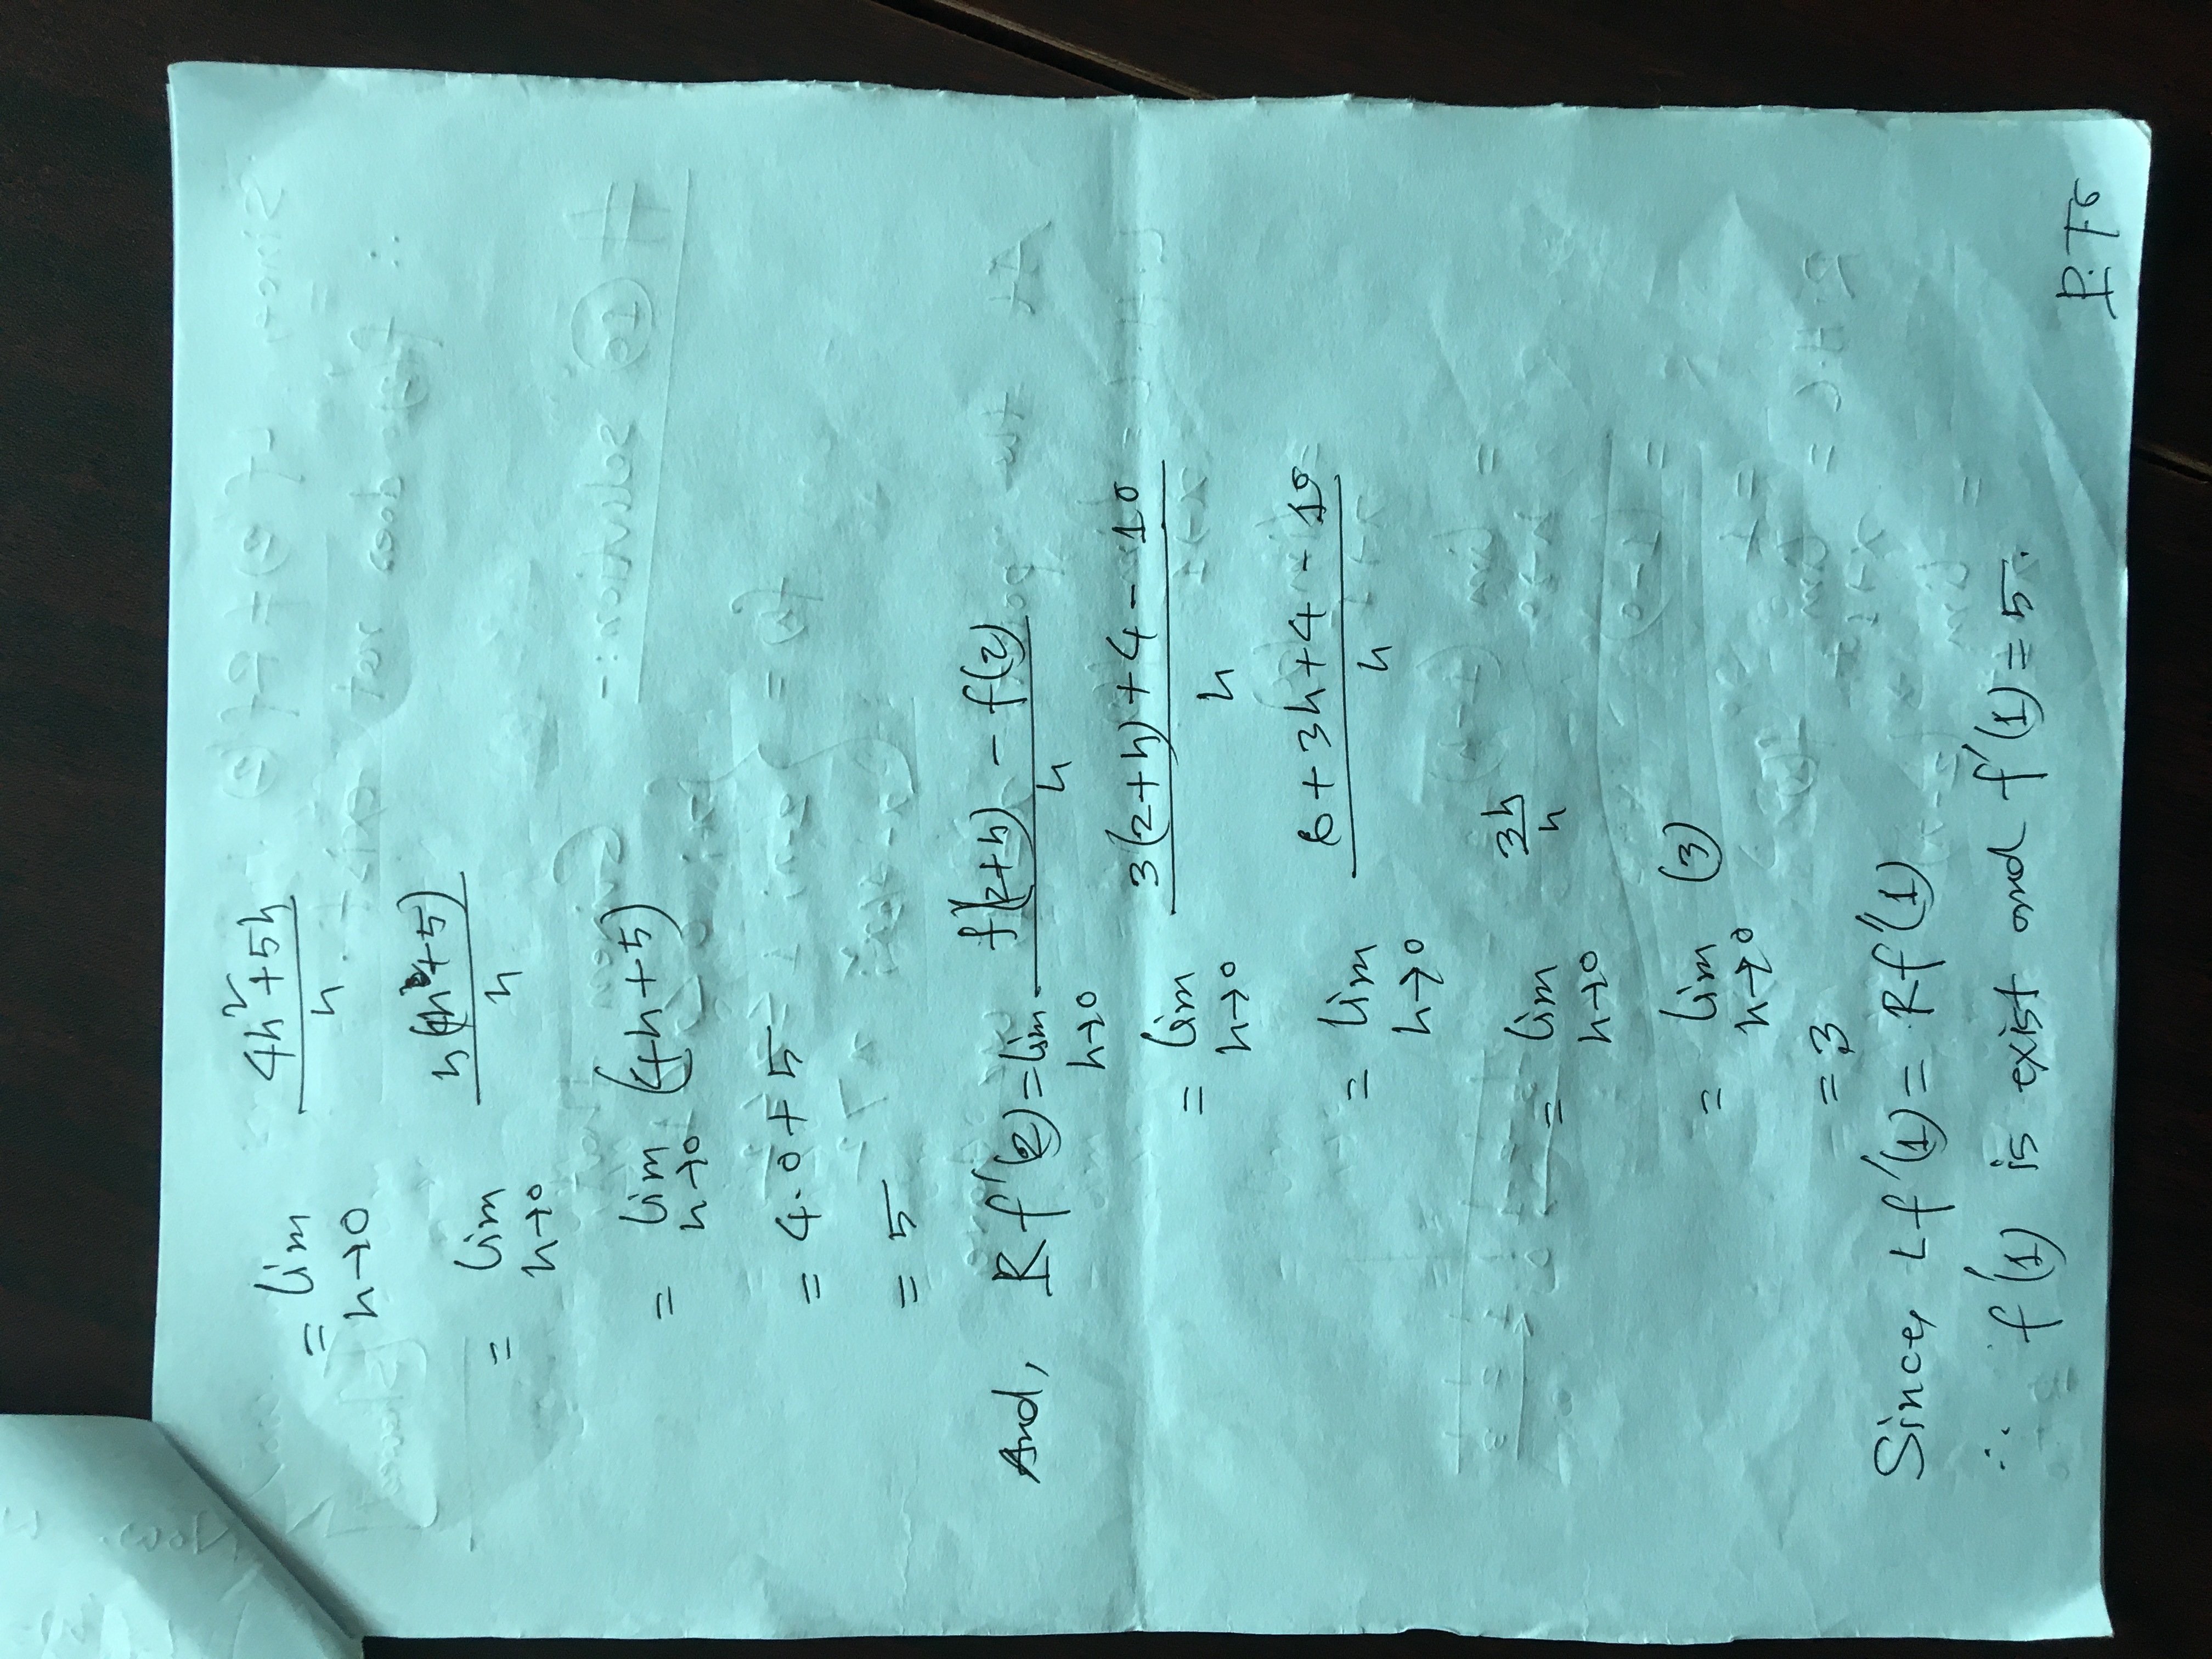 = lim h→0 (4h²+5h)/h
= lim h→0 h(4h+5)/h
= lim h→0 (4h+5)
= 4.0+5
= 5
And, Rf'(2) = lim h→0 (f(2+h) - f(2))/h
= lim h→0 (3(2+h)+4-10)/h
= lim h→0 (6+3h+4-10)/h
= lim h→0 3h/h
= lim h→0 (3)
= 3
Since, Lf'(1) = Rf'(1)
∴ f'(1) is exist and f'(1) = 5.
P.T0